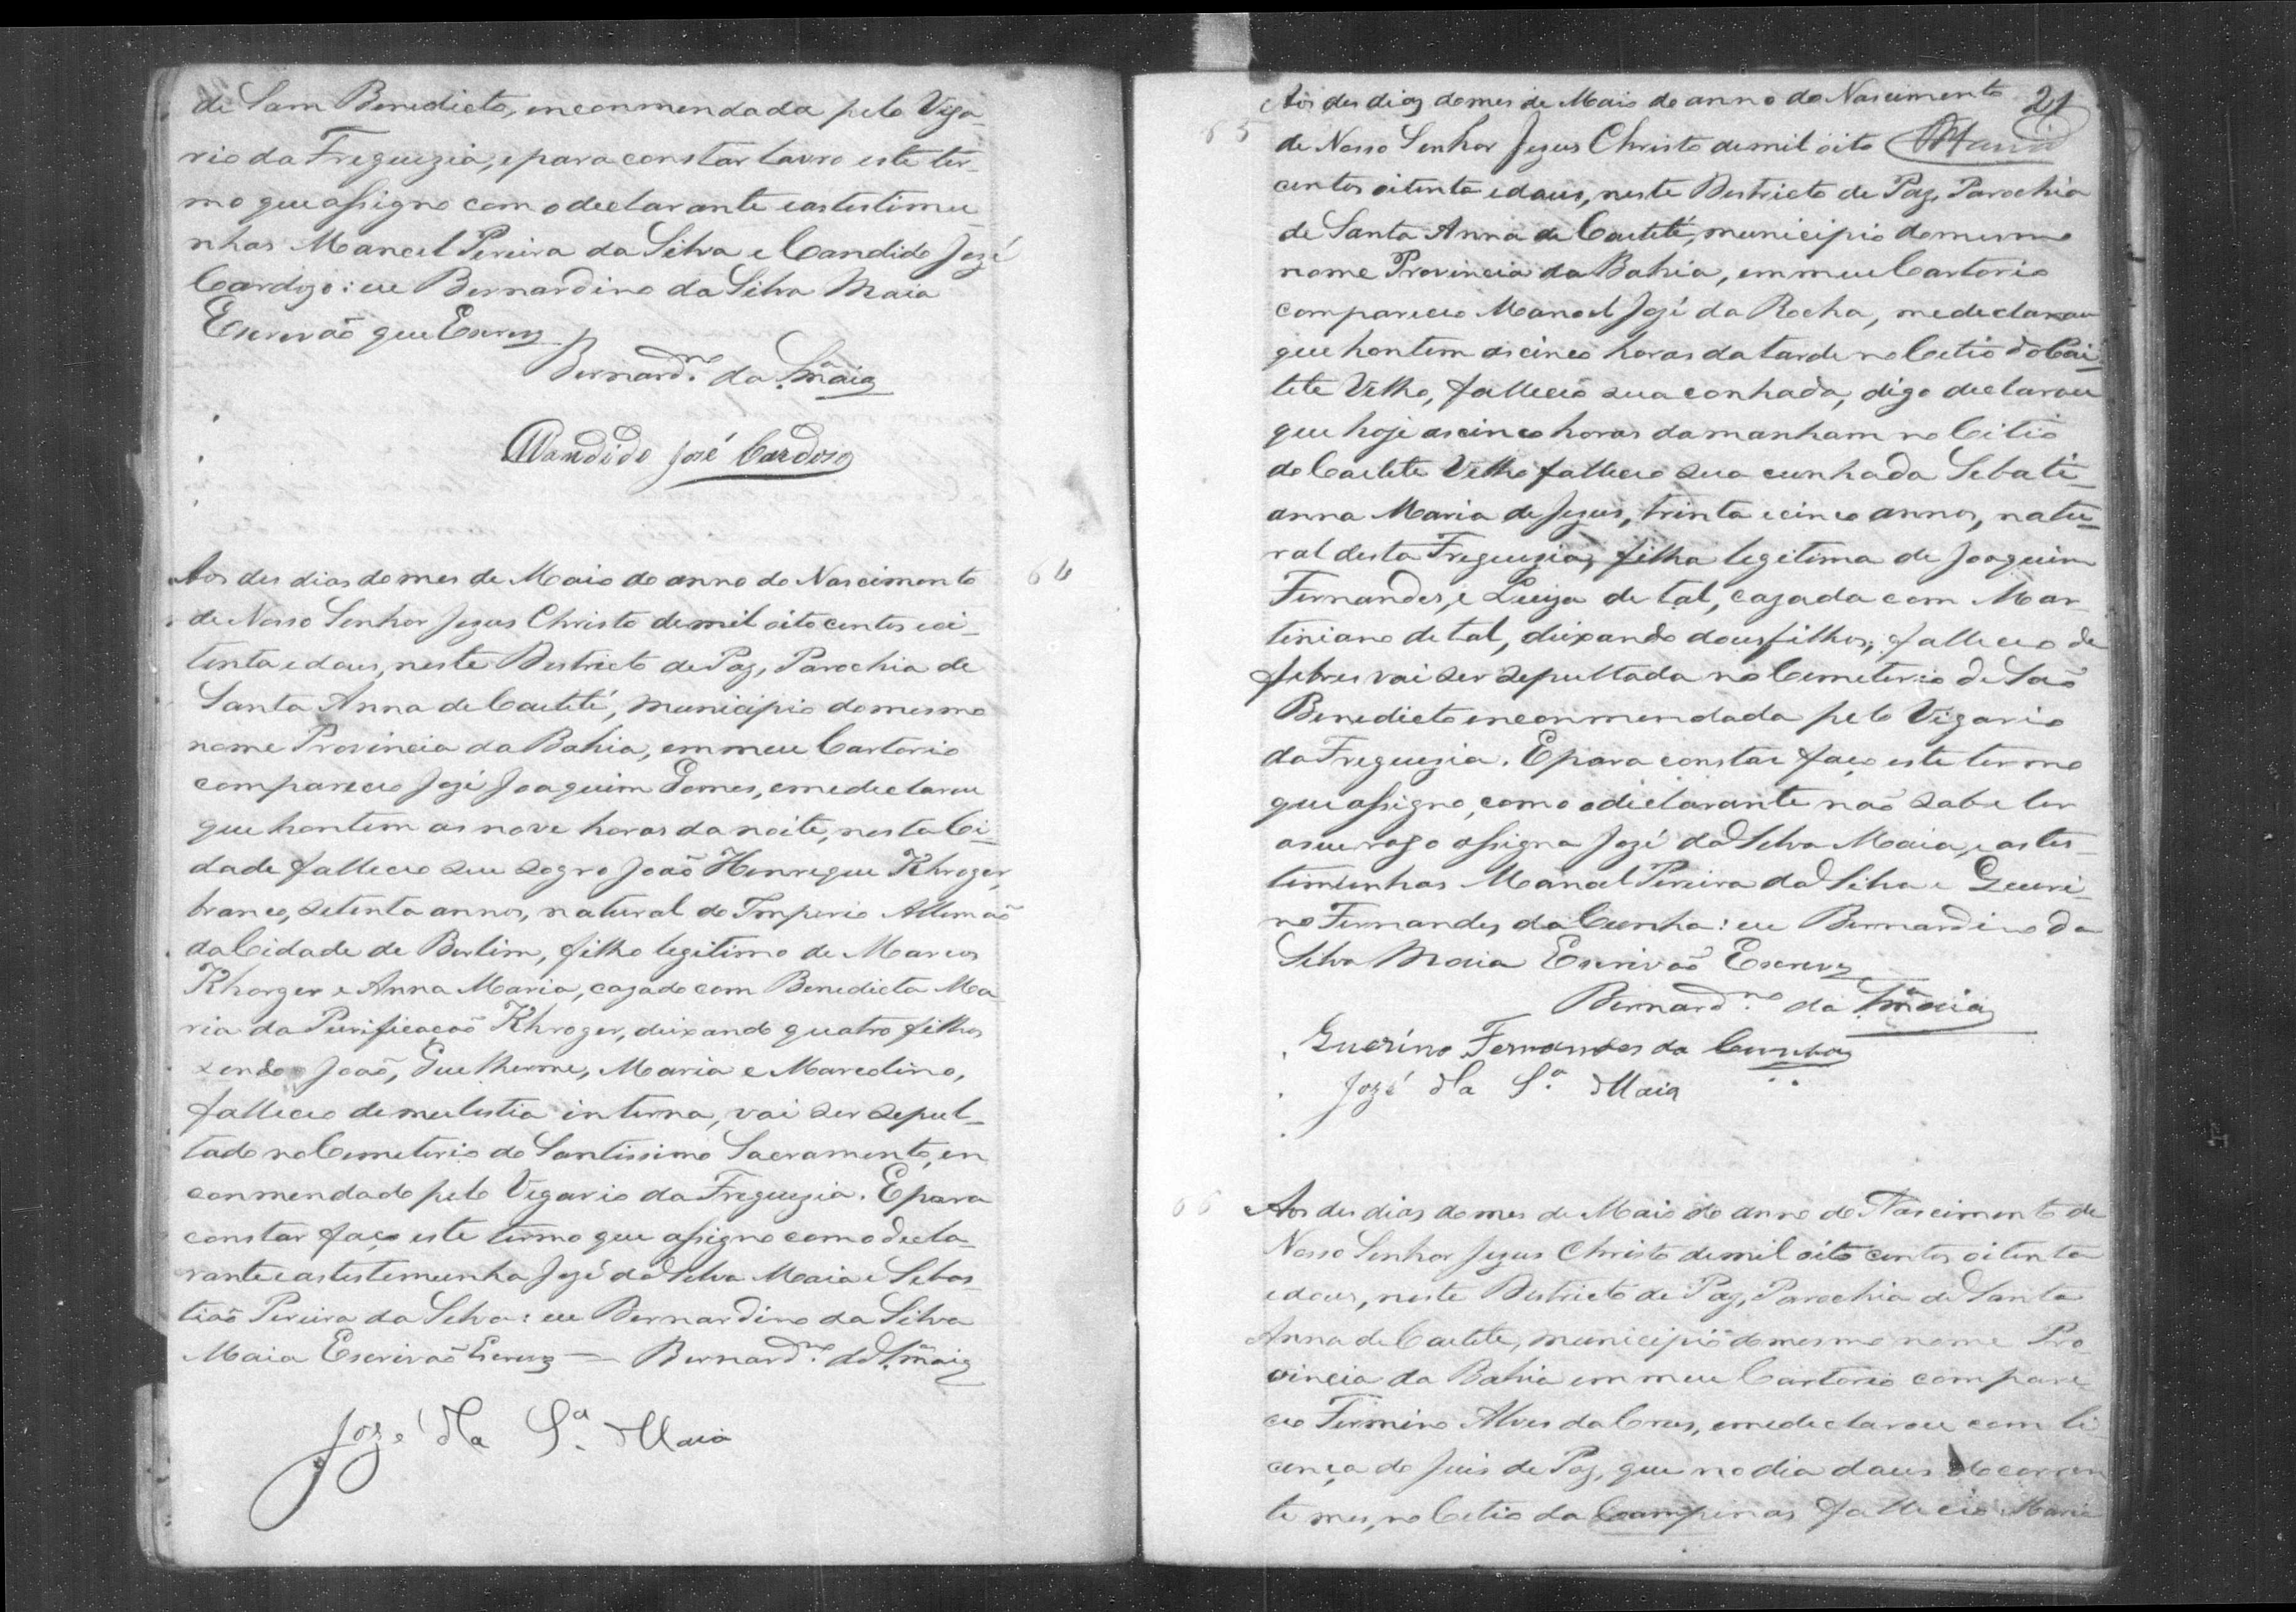 de Sam Benedicto, enconmendada pelo Viga
rio da Freguezia, e para constar lavro este ter-
mo que assigno com o declarante e as testimu
nhas Manoel Pereira da Silva e Candido Jozé
Cardozo: eu Bernardino da Silva Maia
Escrivão que Escrevy
Bernard.no da S.a Maia
Candido José Cardoso
64
Aos des dias do mes de Maio do anno do Nascimento
de Nosso Senhor Jezus Christo de mil oito centos e oi-
tenta e dous, neste Destricto de Paz, Parochia de
Santa Anna de Caetité, municipio do mesmo
nome Provincia da Bahia, em meu Cartorio
compareceo Jozé Joaquim Gomes, e me declarou
que hontem as nove horas da noite, nesta Ci-
dade falleceo seu sogro João Henrique Khroger,
branco, setenta annos, natural do Imperio Allemão
da Cidade de Berlim, filho legitimo de Marcos
Khorger e Anna Maria, cazado com Benedicta Ma
ria da Purificação Khroger, deixando quatro filhos
sendo João, Guelherme, Maria e Marcolino,
falleceo de mulestia interna, vai ser sepul-
tado no Cemeterio do Santissimo Sacramento, en
conmendado pelo Vigario da Freguezia. E para
constar faço este termo que assigno com o decla-
rante e as testemunha Jozé da Silva Maia e Sebas-
tião Pereira da Silva: eu Bernardino da Silva
Maia Escrivão Escrevy — Bernard.no da S.a Maia
Jozé da S.a Maia
21
Maia
65
Aos des dias do mes de Maio do anno do Nascimento
de Nosso Senhor Jezus Christo de mil oito
centos oitenta e dous, neste Destricto de Paz, Parochia
de Santa Anna de Caetité, municipio do mesmo
nome Provincia da Bahia, em meu Cartorio
compareceo Manoel Jozé da Rocha, me declarou
que hontem as cinco horas da tarde no Citio do Cai
tete Velho, falleceo sua conhada, digo declarou
que hoje as cinco horas da manham no Citio
do Caetete Velho falleceo sua cunhada Sebati-
anna Maria de Jezus, trinta e cinco annos, natu-
ral desta Freguezia, filha legitima de Joaquim
Fernandes, e Luiza de tal, cazada com Mar
tiniano de tal, deixando dous filhos, falleceo de
febres vai ser sepultada no Cemeterio de São
Benedicto enconmendada pelo Vigario
da Freguezia. E para constar faço este termo
que assigno, como o declarante não sabe ler
a seu rogo assigna Jozé da Silva Maia, e as tes-
timunhas Manoel Pereira da Silva e Gueri-
no Fernandes da Cunha: eu Bernardino da
Silva Maia Escrivão Escrevy
Bernard.no da S.a Maia
Guerino Fernandes da Cunha
Jozé da S.a Maia
66
Aos des dias do mes de Maio do anno do Nascimento de
Nosso Senhor Jezus Christo de mil oito centos oitenta
e dous, neste Destricto de Paz, Parochia de Santa
Anna de Caetete, municipio do mesmo nome Pro
vincia da Bahia em meu Cartorio compare
ceo Firmino Alves da Crus, e me declarou com li
cença do Juis de Paz, que no dia dous do corren
te mes, no Citio da Campinas falleceo Maria